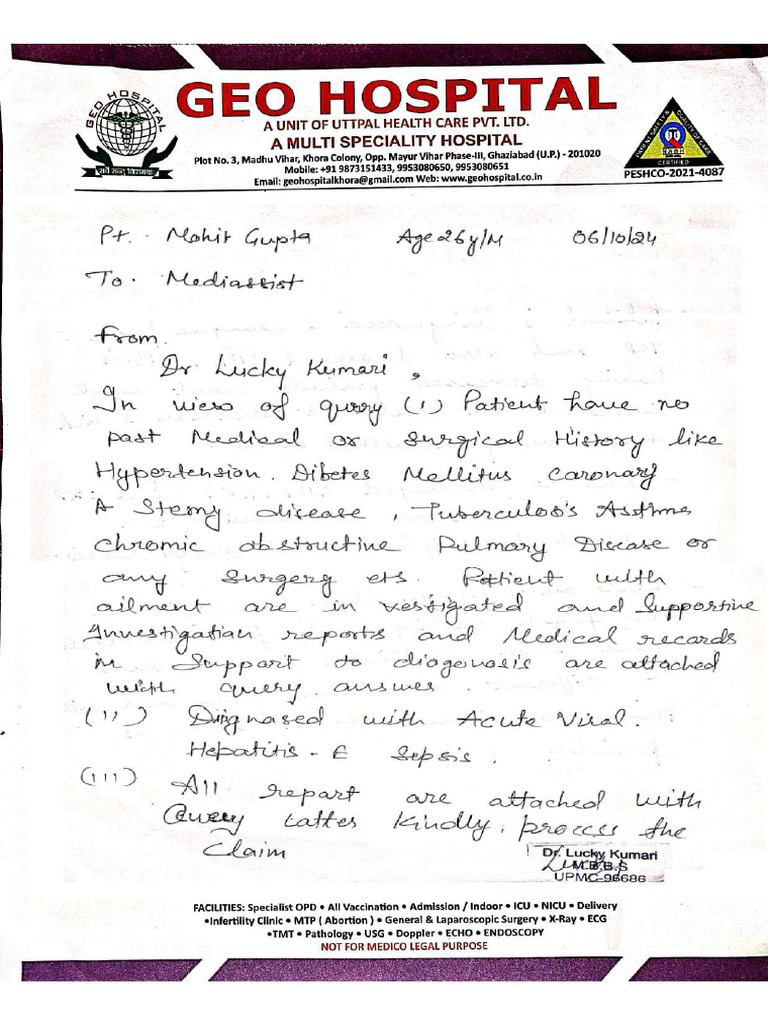 GEO HOSPITAL
GEO HOSPITAL
A UNIT OF UTTPAL HEALTH CARE PVT. LTD.
A MULTI SPECIALITY HOSPITAL
Plot No. 3, Madhu Vihar, Khora Colony, Opp. Mayur Vihar Phase-III, Ghaziabad (U.P.) - 201020
Mobile: +91 9873151433, 9953080650, 9953080651
Email: geohospitalkhora@gmail.com Web: www.geohospital.co.in
सर्वे सन्तु निरामया
PATIENT SAFETY & QUALITY OF CARE
CERTIFIED
PESHCO-2021-4087
Pt. Mohit Gupta Age 26y/M 06/10/24
To. Mediassist
From
Dr Lucky Kumari,
In view of query (1) Patient have no
past Medical or Surgical History like
Hypertension. Dibetes Mellitus Caronary
A Stemy disease, Tuberculos's Asthme
chromic obstructine Pulmary Disease or
any Surgery ets. Patient with
ailment are in vestigated and Supportine
Investigatian reports and Medical records
in Support to diogenosis are attached
with query answer.
(11) Dignased with Acute Viral.
Hepatitis - E Sepsis.
(111) All repart are attached with
Query Lattes Kindly, process the
Claim
Dr. Lucky Kumari
M.B.B.S
UPMC-96686
FACILITIES: Specialist OPD • All Vaccination • Admission / Indoor • ICU • NICU • Delivery
•Infertility Clinic • MTP ( Abortion ) • General & Laparoscopic Surgery • X-Ray • ECG
•TMT • Pathology • USG • Doppler • ECHO • ENDOSCOPY
NOT FOR MEDICO LEGAL PURPOSE